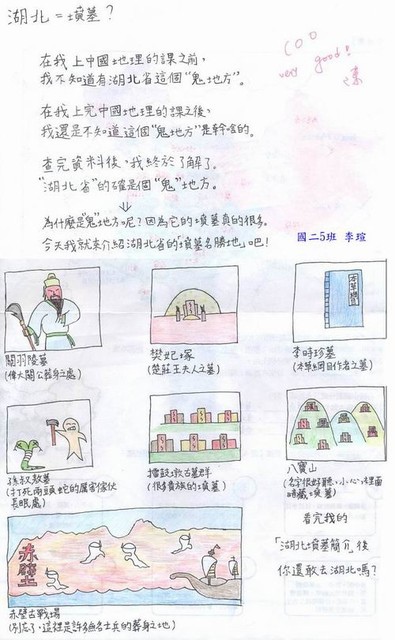 湖北=墳墓?
100
very good!
在我上中國地理的課之前,
我不知道有湖北省這個"鬼地方"。
在我上完中國地理的課之後,
我還是不知道這個"鬼地方"是幹啥的。
查完資料後,我終於了解了。
"湖北省"的確是個"鬼"地方。
為什麼是"鬼"地方呢?因為它的墳墓真的很多。
今天我就來介紹湖北省的「墳墓名勝地」吧!
國二5班 李瑄
關羽陵墓
(偉大關公葬身之處)
樊妃塚
(楚莊王夫人之墓)
本草綱目
李時珍墓
(本草綱目作者之墓)
孫叔敖墓
(打死兩頭蛇的厲害傢伙
長眠處)
擂鼓墩古墓群
(很多貴族的墳墓)
八寶山
(名字很好聽,小心,裡面
暗藏墳墓)
赤壁
赤壁古戰場
(別忘了,這裡是許多無名士兵的葬身之地)
看完我的
「湖北墳墓簡介」後
你還敢去湖北嗎?